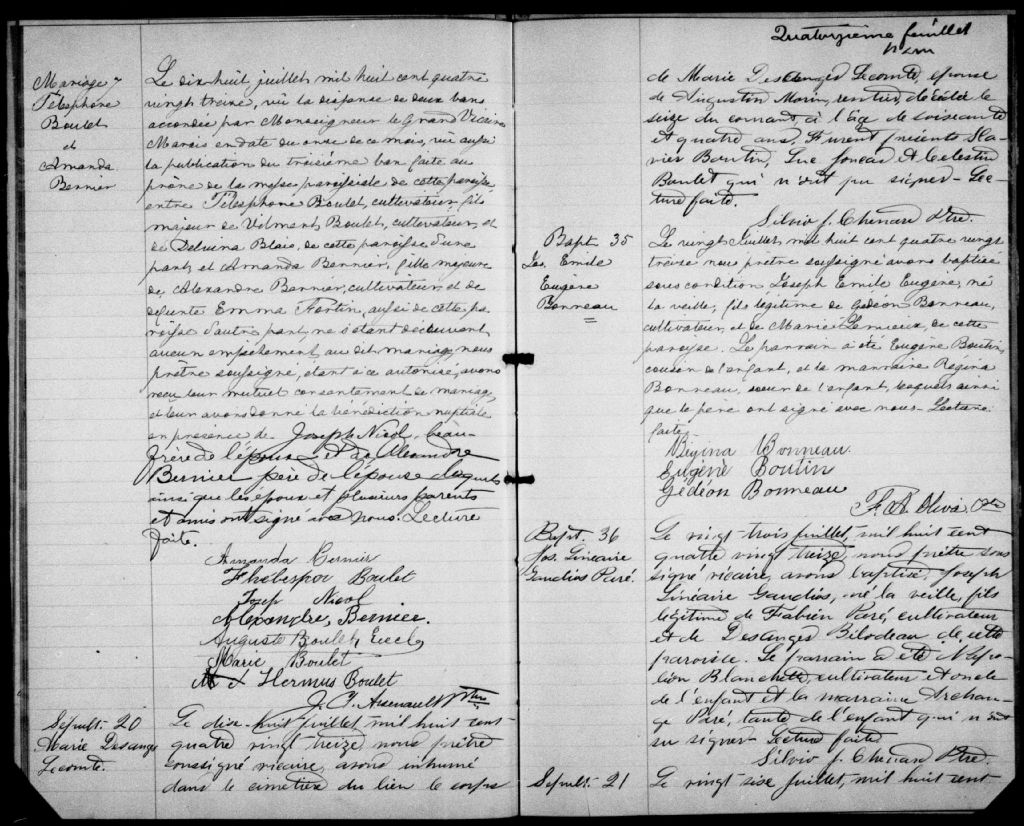 Mariage 7
Télesphore
Boulet
et
Amanda
Bernier
Le dix huit juillet mil huit cent quatre
vingt treize, vû la dispense de deux bans
accordée par Monseigneur le Grand Vicaire
Marois en date du onze de ce mois, vu aussi
la publication du troisième ban faite au
prône de la messe paroissiale de cette paroisse
entre Télesphore Boulet, cultivateur, fils
majeur de Boulet, cultivateur, et
de Delvina Blais, de cette paroisse d'une
part, et Amanda Bernier, fille majeure
de Alexandre Bernier, cultivateur et de
défunte Emma Fortin, aussi de cette pa-
roisse d'autre part, ne s'étant découvert
aucun empêchement au dit mariage, nous
prêtre soussigné, étant à ce autorisé, avons
reçu leur mutuel consentement de mariage
et leur avons donné la bénédiction nuptiale
en présence de Joseph Nicol, beau-
frère de l'époux et de Alexandre
Bernier père de l'épouse lesquels
ainsi que les époux et plusieurs parents
et amis ont signé avec nous. Lecture
faite.
Amanda Bernier
Boulet
Josep Nicol
Alexandre Bernier.
Auguste Boulet, Eccl.
Marie Boulet
Hermus Boulet
Arsenault Ptre
Sépult. 20
Marie Desanges
Lecomte.
Le dix-huit juillet mil huit cent
quatre vingt treize nous prêtre
soussigné vicaire, avons inhumé
dans le cimetière du lieu le corps
Quatorzième feuillet
de Marie Desanges Lecomte, épouse
de Augustin Morin, rentier, décédée le
seize du courant à l'âge de soixante
et quatre ans. Furent présents
Boutin, Luc Joncas et Célestin
Boulet qui n'ont pu signer - Lec-
ture faite.
Silvio J. Chenard Ptre.
Bapt. 35
Jos. Emile
Eugène
Bonneau
Le vingt Juillet mil huit cent quatre vingt
treize nous prêtre soussigné avons baptisé
sous condition Joseph Emile Eugène, né
la veille, fils légitime de Gédéon Bonneau,
cultivateur, et de Marie Lemieux, de cette
paroisse. Le parrain a été Eugène Boutin,
cousin de l'enfant, et la marraine Régina
Bonneau, soeur de l'enfant, lesquels ainsi
que le père ont signé avec nous - Lecture
faite
Régina Bonneau.
Eugène Boutin
Gédéon Bonneau
Oliva Ptre
Bapt. 36
Jos. Linéaire
Gaudios Paré.
Le vingt trois juillet, mil huit cent
quatre vingt treize, nous prêtre sous
signé vicaire, avons baptisé Joseph
Linéaire Gaudios, né la veille, fils
légitime de Fabien Paré, cultivateur
et de Desanges Bilodeau de cette
paroisse. Le parrain a été Napo-
léon Blanchette, cultivateur et oncle
de l'enfant et la marraine Archan-
ge Paré, tante de l'enfant qui n'ont
su signer - Lecture faite
Silvio J. Chenard Ptre.
Sépult. 21
Le vingt sixe juillet, mil huit cent